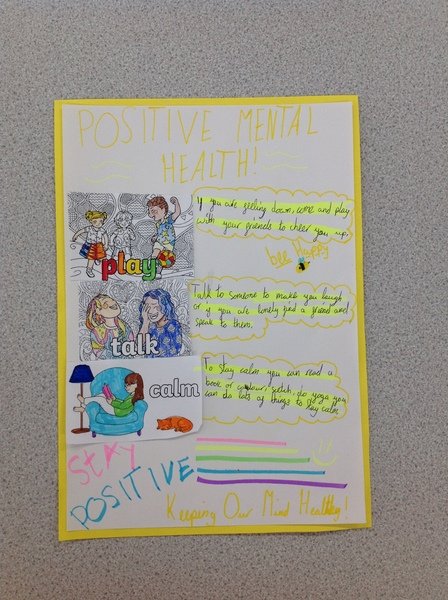 POSITIVE MENTAL
HEALTH!
play
If you are feeling down, come and play
with your friends to cheer you up.
bee Happy
talk
Talk to someone to make you laugh
or if you are lonely find a friend and
speak to them.
calm
To stay calm you can read a
book or colour, sketch, do yoga you
can do lots of things to stay calm
STAY
POSITIVE
Keeping Our Mind Healthy!